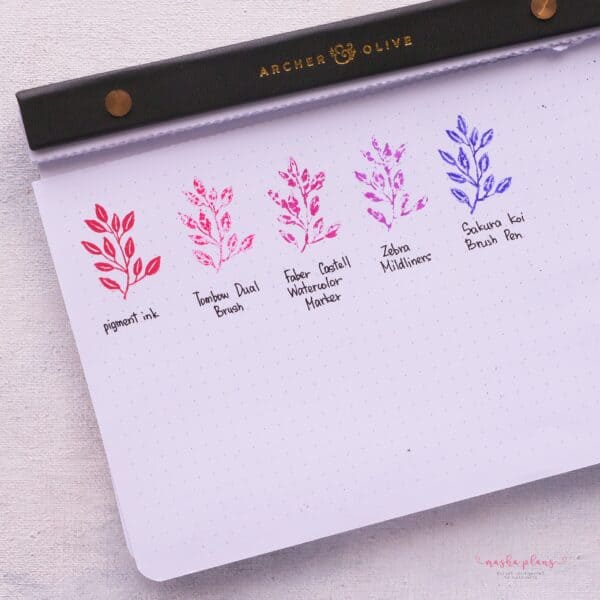 ARCHER & OLIVE
pigment ink
Tombow Dual
Brush
Faber Castell
Watercolor
Marker
Zebra
Mildliners
Sakura Koi
Brush Pen
masha plans